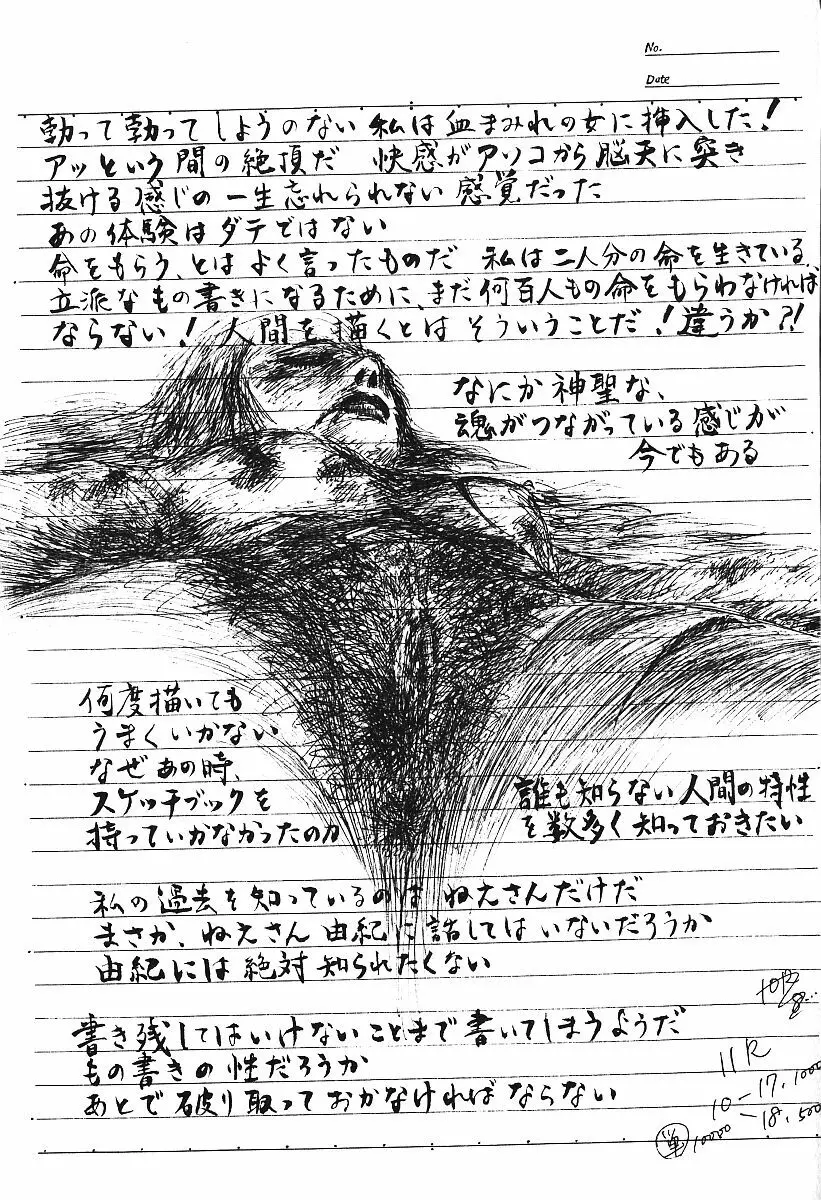 No.
Date
勃って勃ってしようのない 私は血まみれの女に挿入した！
アッという間の絶頂だ 快感がアソコから脳天に突き
抜ける感じの一生忘れられない感覚だった
あの体験はダテではない
命をもらう、とはよく言ったものだ 私は二人分の命を生きている
立派なもの書きになるために、まだ何百人もの命をもらわなければ
ならない！ 人間を描くとはそういうことだ！違うか？！
なにか神聖な、
魂がつながっている感じが
今でもある
何度描いても
うまくいかない
なぜあの時、
スケッチブックを
持っていかなかったのか
誰も知らない人間の特性
を数多く知っておきたい
私の過去を知っているのは ねえさんだけだ
まさか、ねえさん 由紀に話してはいないだろうか
由紀には絶対知られたくない
書き残してはいけないことまで書いてしまうようだ
もの書きの性だろうか
あとで破り取っておかなければならない
11R
10-17,1000
10000-18,500